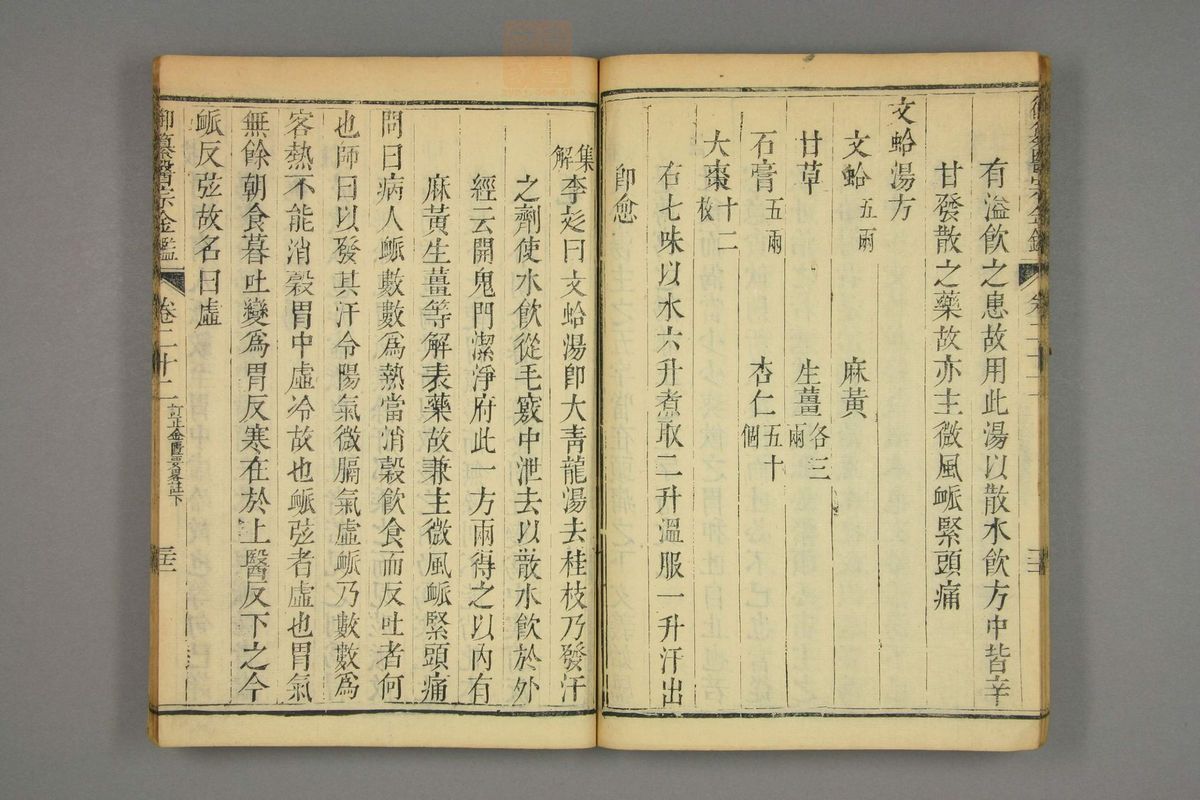 有溢飲之患故用此湯以散水飲方中皆辛
甘發散之藥故亦主微風脈緊頭痛
文蛤湯方
文蛤五兩 麻黃
甘草 生薑各三兩
石膏五兩 杏仁五十個
大棗十二枚
右七味以水六升煮取二升溫服一升汗出
卽愈
集解李彣曰文蛤湯卽大青龍湯去桂枝乃發汗
之劑使水飲從毛竅中泄去以散水飲於外
經云開鬼門潔淨府此一方兩得之以內有
麻黃生薑等解表藥故兼主微風脈緊頭痛
問曰病人脈數數爲熱當消穀飲食而反吐者何
也師曰以發其汗令陽氣微膈氣虛脈乃數數爲
客熱不能消穀胃中虛冷故也脈弦者虛也胃氣
無餘朝食暮吐變爲胃反寒在於上醫反下之今
脈反弦故名曰虛
御纂醫宗金鑑 卷二十二 訂正金匱要畧註下